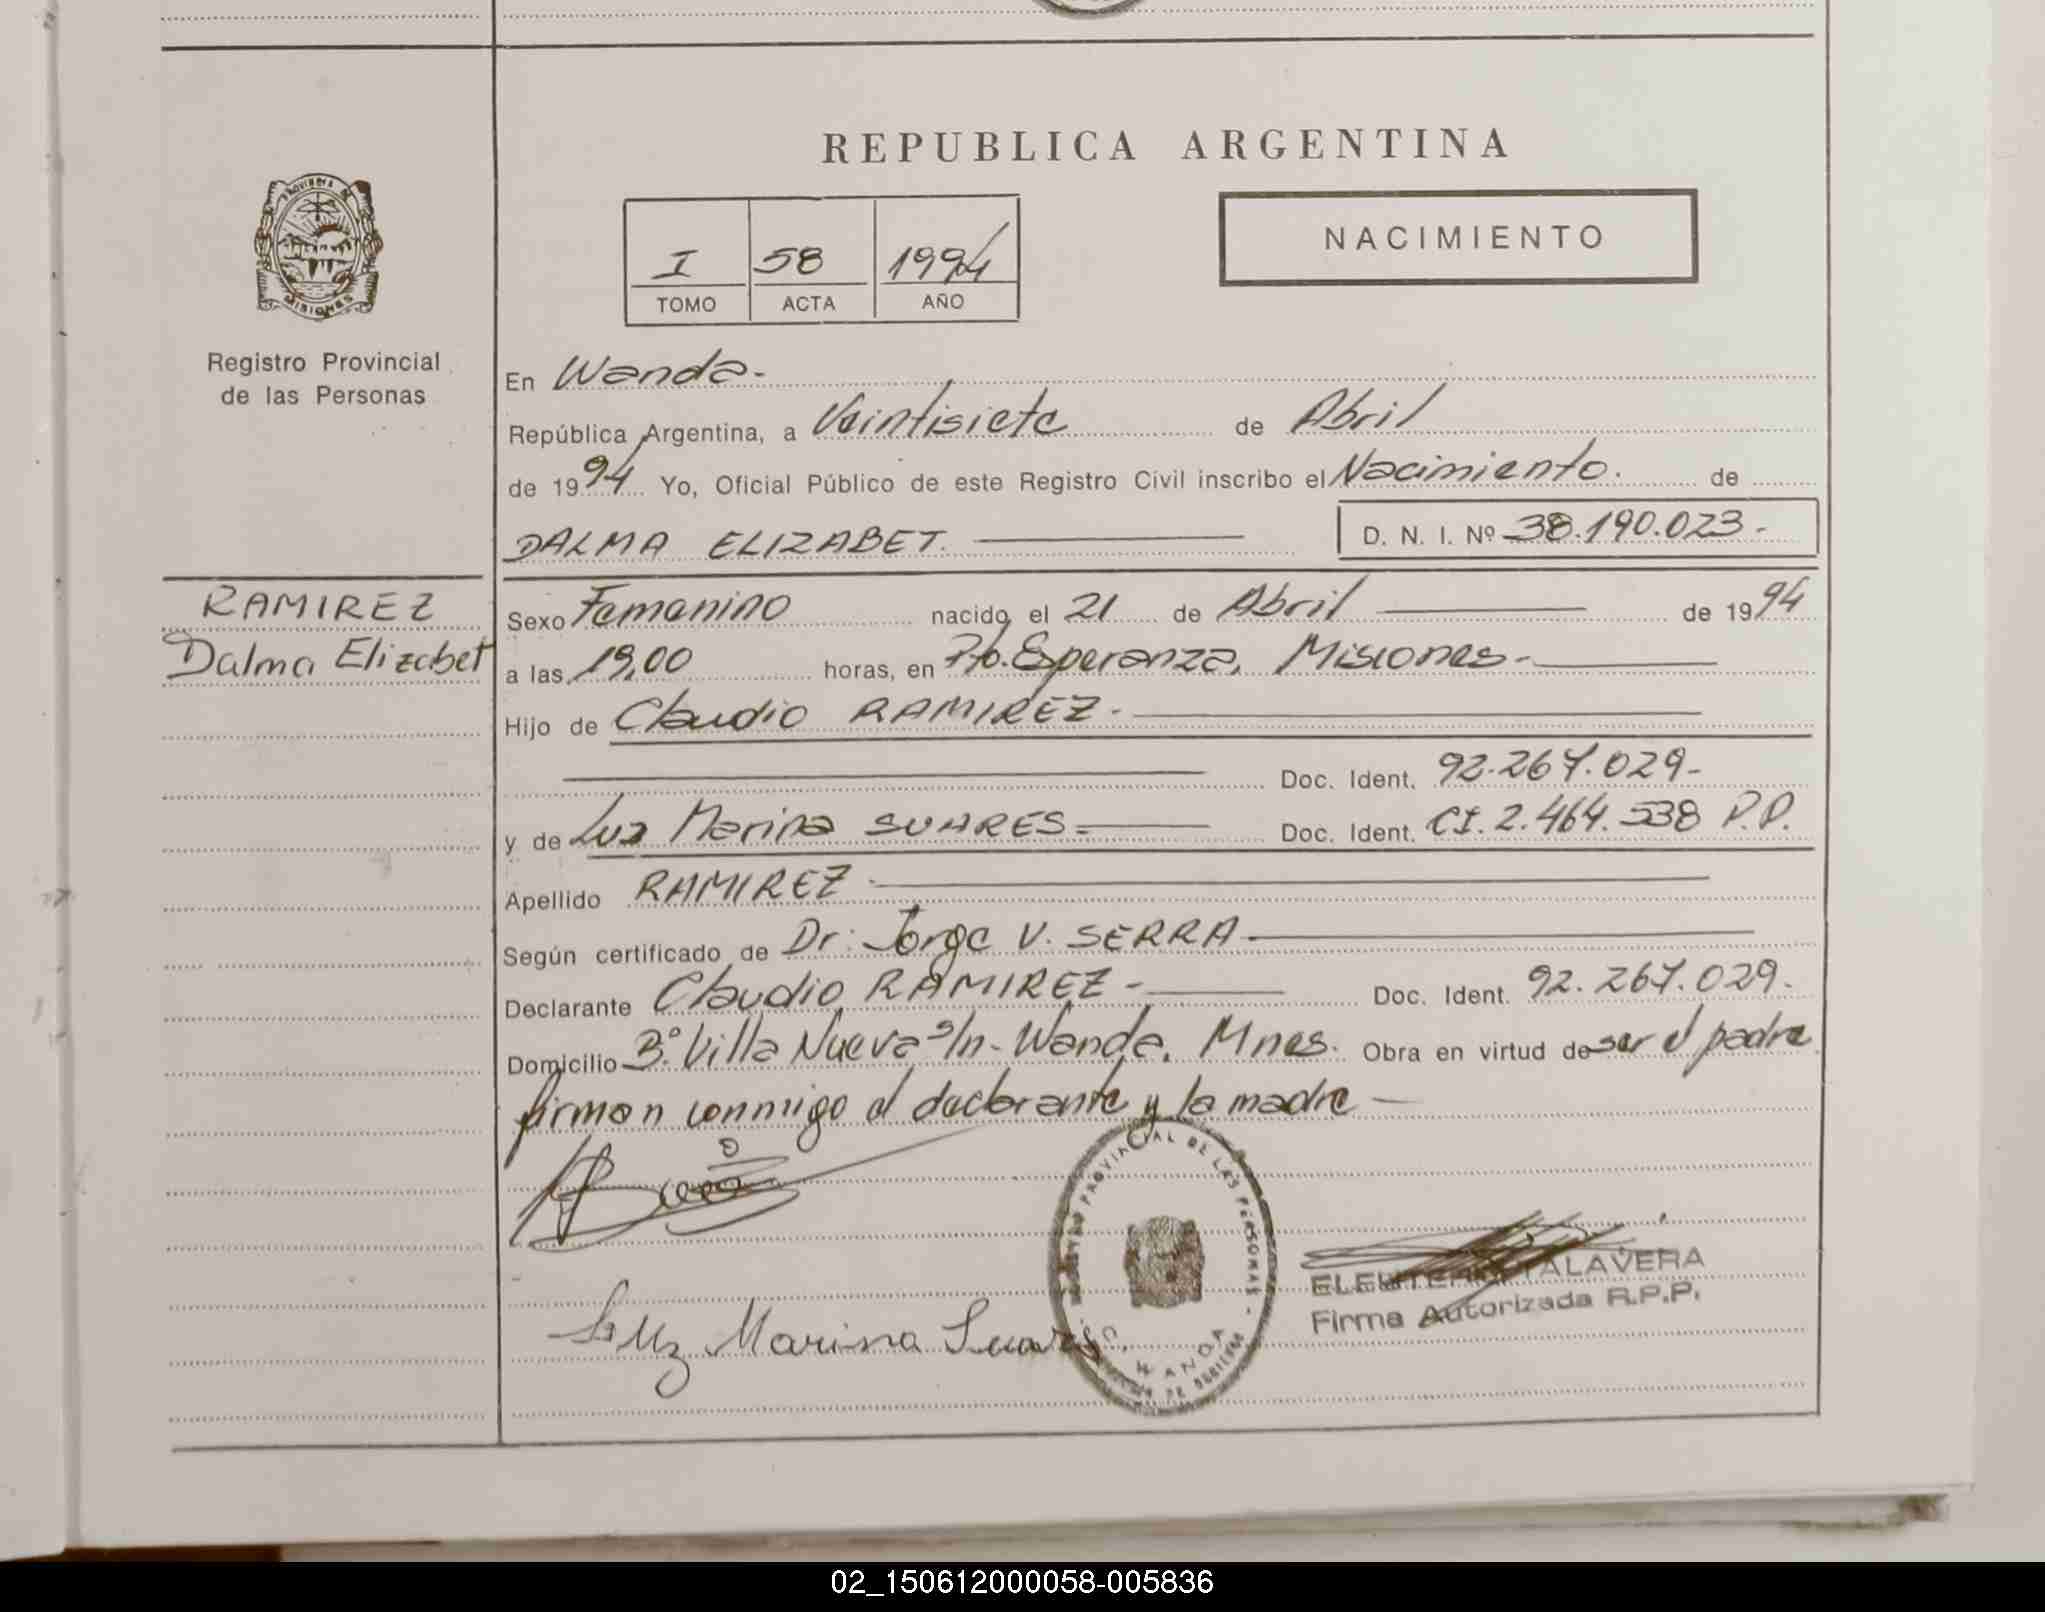 REPUBLICA ARGENTINA
PROVINCIA DE
MISIONES
Registro Provincial
de las Personas
I 58 1994
TOMO ACTA AÑO
NACIMIENTO
En Wanda.-
República Argentina, a Veintisiete de Abril
de 1994 Yo, Oficial Público de este Registro Civil inscribo el Nacimiento. de
DALMA ELIZABET. D. N. I. Nº 38.190.023.-
RAMIREZ
Dalma Elizabet
Sexo Femenino nacido el 21 de Abril de 1994
a las 19,00 horas, en Pto. Esperanza, Misiones.-
Hijo de Claudio RAMIREZ.-
Doc. Ident. 92.267.029.-
y de Luz Marina SUARES.= Doc. Ident. CI. 2.464.538 P.P.
Apellido RAMIREZ.-
Según certificado de Dr. Jorge V. SERRA.-
Declarante Claudio RAMIREZ.- Doc. Ident. 92.267.029.
Domicilio Bº Villa Nueva s/n - Wanda, Mnes. Obra en virtud de ser el padre
firman conmigo el declarante y la madre -
REGISTRO PROVINCIAL DE LAS PERSONAS -
WANDA
Luz Marina Suares
ELEUTERIO TALAVERA
Firma Autorizada R.P.P.
02_150612000058-005836